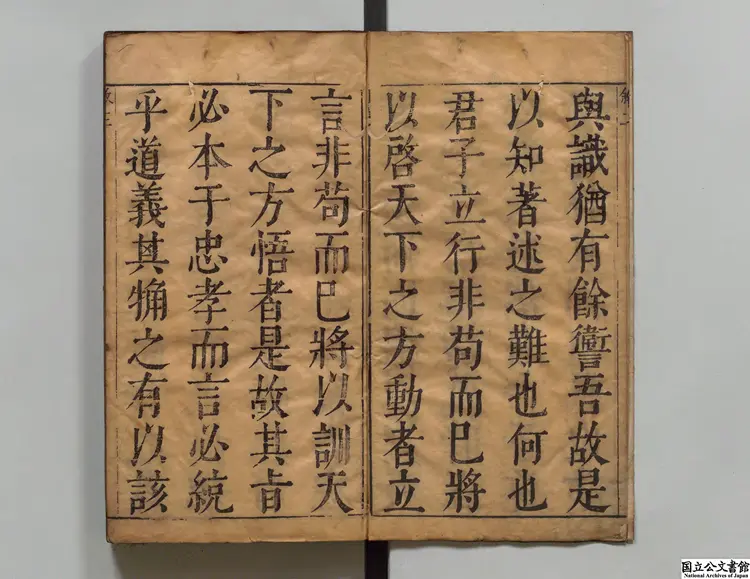 與識猶有餘讆吾故是
以知著述之難也何也
君子立行非苟而已將
以啓天下之方動者立
言非苟而已將以訓天
下之方悟者是故其旨
必本于忠孝而言必統
乎道義其觕之有以該
国立公文書館
National Archives of Japan